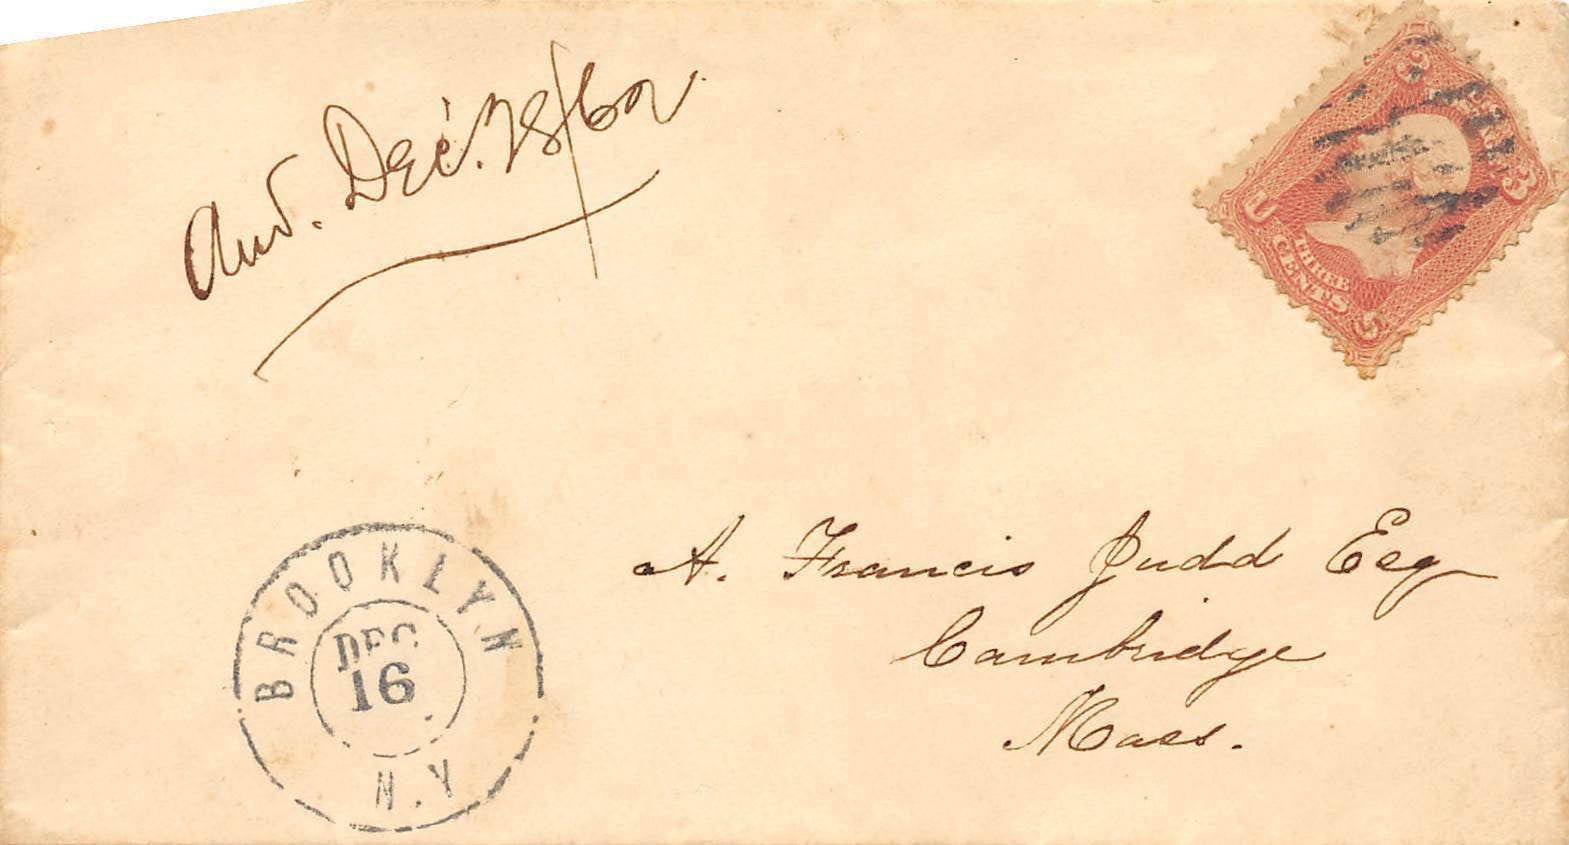 Ans. Dec. 28/62
3 3
U S
THREE
CENTS
A. Francis Judd Esq
Cambridge
Mass.
BROOKLYN
DEC
16
N.Y